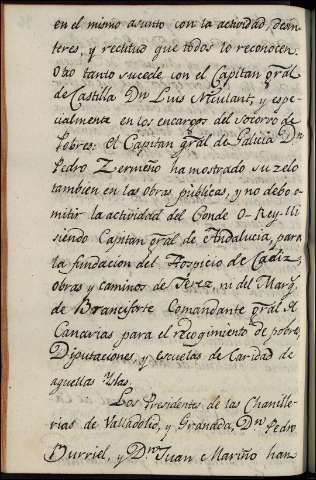 en el mismo asunto con la actividad, desin-
teres, y rectitud que todos lo reconocen.
Otro tanto sucede con el Capitan gral
de Castilla Dn. Luis Niculant, y espe-
cialmente en los encargos del Socorro de
Pobres: El Capitan gral de Galicia Dn
Pedro Zermeño ha mostrado su zelo
tambien en las obras publicas, y no debo o-
mitir la actividad del Conde O-Rey-lli
siendo Capitan gral de Andalucia, para
la fundacion del Hospicio de Cadiz,
obras y caminos de Jerez, ni del Marq.
de Branciforte Comandante gral de
Canarias para el recogimiento de pobres,
Diputaciones, y escuelas de Caridad de
aquellas Yslas.
Los Presidentes de las Chanille-
rias de Valladolid, y Granada, Dn. Pedro
Burriel, y Dn. Juan Mariño han